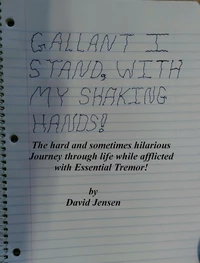 GALLANT I
STAND, WITH
MY SHAKING
HANDS!
The hard and sometimes hilarious
Journey through life while afflicted
with Essential Tremor!
by
David Jensen